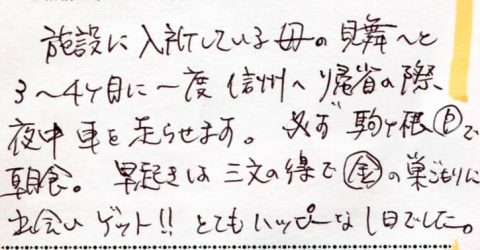 施設に入所している母の見舞へと
3〜4ヶ月に一度信州へ帰省の際、
夜中車を走らせます。必ず駒ヶ根Ⓟで
朝食。早起きは三文の得で㊎の巣ごもりに
出会いゲット!!とてもハッピーな1日でした。